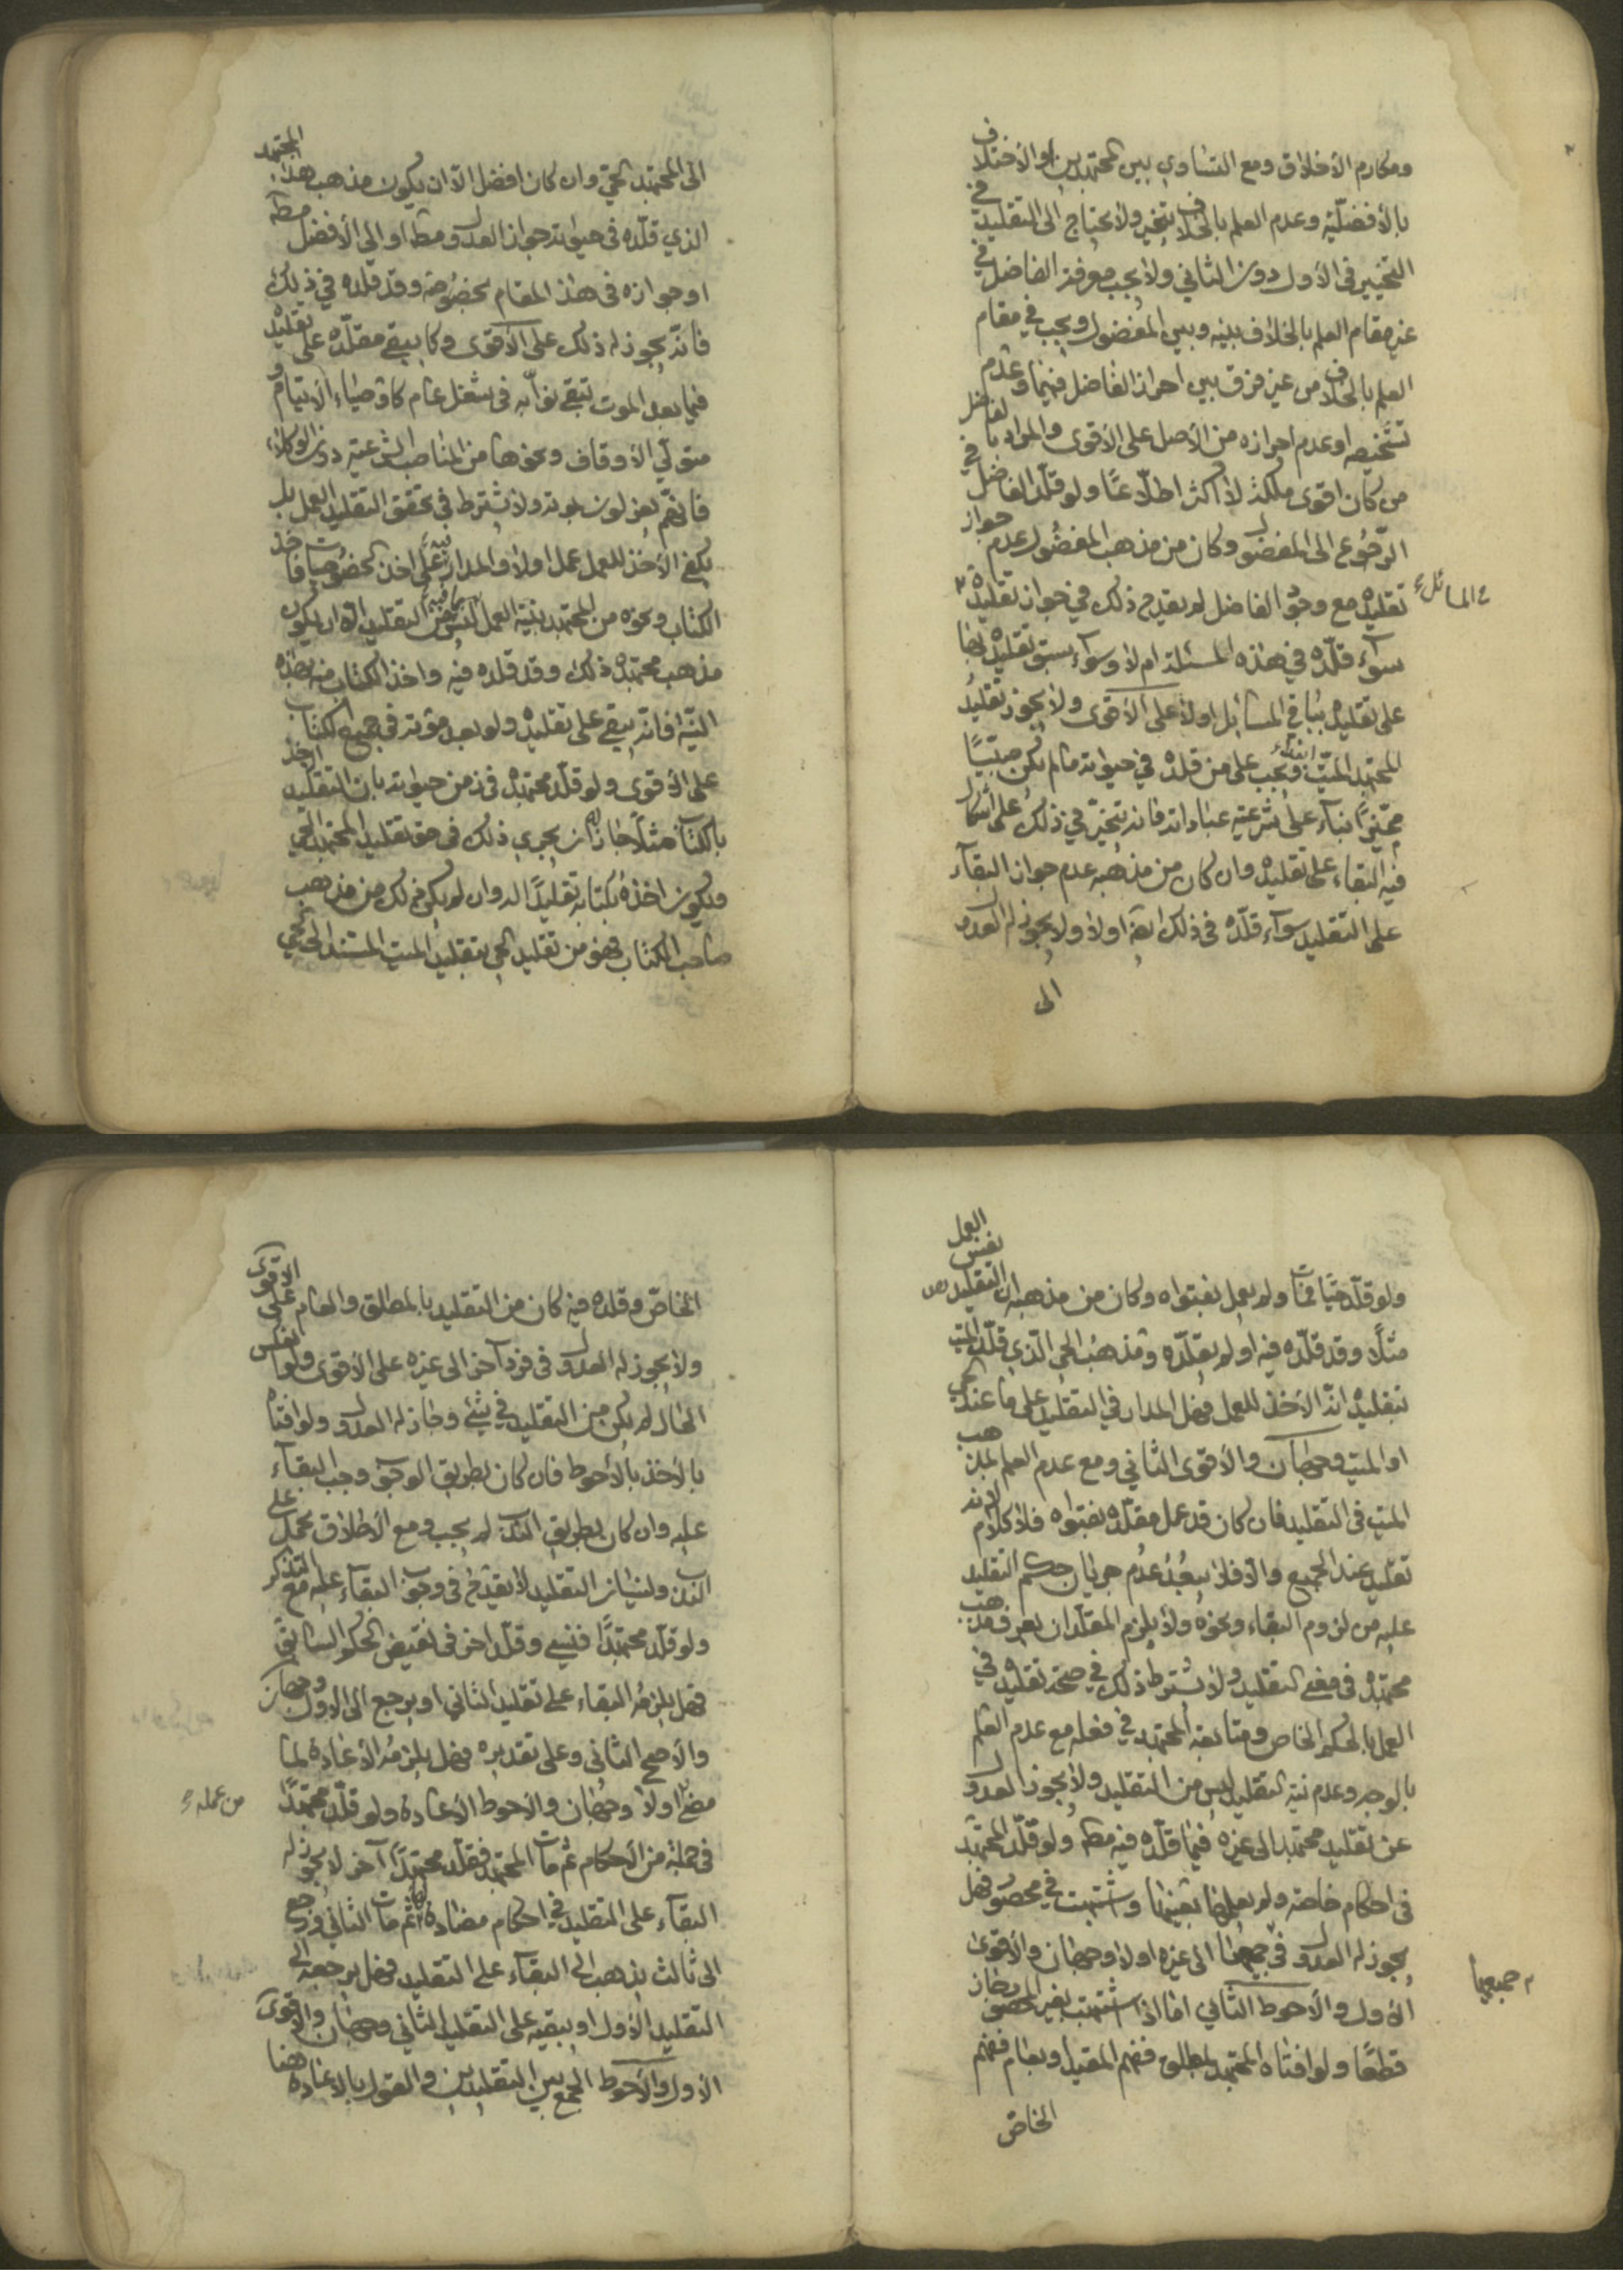 ومكارم الأخلاق ومع التساوي بين المجتهدين والأختلاف
بالأفضليّة وعدم العلم بالخلاف يتخير ولا يحتاج الى التقليد في
التخيير في الأول دون الثاني ولا يجب معرفة الفاضل في
غير مقام العلم بالخلاف بينه وبين المفضول ويجب في مقام
العلم بالخلاف من غير فرق بين احراز الفاضل فيهما وعدم
تشخيصه او عدم احرازه من الأصل على الأقوى والمراد بالفاضل
من كان اقوى ملكة لا اكثر اطلاعًا ولو قلّد الفاضل في
الرّجوع الى المفضول وكان من مذهب المفضول عدم جواز
تقليده مع وجود الفاضل لم يقدح ذلك في جواز تقليده
في المسائل
سوآء قلّده في هذه المسئلة ام لا وسوآء سبق تقليده
على تقليده بباقي المسائل اولا على الأقوى ولا يجوز تقليد
المجتهد الميّت ابتداء ويجب على من قلده في حيوته مالم يكن صبيًّا
مميّزًا بناء على شرعية عباداته فانه يتخيّر في ذلك على اشكال
فيه البقاء على تقليده وان كان من مذهبه عدم جواز البقآء
على التقليد سوآء قلّده في ذلك اولا ولا يجوز له العدول
الى
الى المجتهد الحيّ وان كان افضل الّا ان يكون مذهب هذا المجتهد
الذي قلّده في حيوته جواز العدول مطه او الى الأفضل مطه
او جوازه في هذا المقام بخصوصه وقد قلده في ذلك
فانّه يجوز له ذلك على الأقوى وكما يبقى مقلّده على تقليده
فيما بعد الموت تبقى نوّابه في شغل عام كاوصياء الأيتام و
متولّي الأوقاف ونحوها من المناصب الشرعيّة دون الوكلاء
فانهّم يعزلون بموته ولا يشترط في تحقق التقليد العمل بل
يكفي الأخذ للعمل عمل اولا والمدار على اخذ الخصوصيات فاخذ
الكتاب ونحوه من المجتهد بنية العمل ليس من التقليد الّا ان يكون
مذهب مجتهده ذلك وقد قلده فيه واخذ الكتاب منه بهذه
النيّة فانّه يبقى على تقليده ولو بعد موته في جميع الكتاب
على الأقوى ولو قلّد مجتهده في زمن حيوته بان التقليد الأخذ
بالكتاب مثلًا جاز ان يجري ذلك في حق تقليد المجتهد الحي
ويكون اخذه بكتابه تقليدًا له وان لم يكن ذلك من مذهب
صاحب الكتاب فهو من تقليد الحي بتقليد الميت المستند الى الحي
ولو قلّد حيًّا فمات ولم يعمل بفتواه وكان من مذهبه ان التقليد نفس العمل
مثلًا وقد قلّده فيه اولم يقلّده ومذهب الحي الّذي قلّد الميّت
بتقليده انّه الأخذ للعمل فهل المدار في التقليد على ما عند الحي
او الميت وجهان والأقوى الثاني ومع عدم العلم بمذهب
الميت في التقليد فان كان قد عمل مقلّده بفتواه فلا كلام لانه
تقليد عند الجميع والّا فلا يبعد عدم جريان حكم التقليد
عليه من لزوم البقاء ونحوه ولا يلزم المقلّد ان يعرف مذهب
مجتهده في معنى التقليد ولا يشترط ذلك في صحة تقليده في
العمل بالحكم الخاص ومتابعة المجتهد في فعله مع عدم العلم
بالوجه وعدم نية التقليد ليس من التقليد ولا يجوز العدول
عن تقليد مجتهد الى غيره فيما قلّده فيه مطه ولو قلّد المجتهد
في احكام خاصة ولم يعلمها بعينها واشتبهت في محصور فهل
يجوز له العدول في جميعها الى غيره اولا وجهان والأقوى
جميعها
الأول والأحوط الثاني امّا اذا اشتبهت بغير المحصور جاز
قطعًا ولو افتاه المجتهد بمطلق ففهم المقيد او بعام ففهم
الخاص
الخاصّ وقلده فيه كان من التقليد بالمطلق والعام على الأقوى
ولا يجوز له العدول في فرد آخر الى غيره على الأقوى ولو انعكس
الحال لم يكن من التقليد في شئ وجاز له العدول ولو افتاه
بالأخذ بالأحوط فان كان بطريق الوجوب وجب البقآء
عليه وان كان بطريق الندب لم يجب ومع الأطلاق يحمل على
الندب ونسيان التقليد لا يقدح في وجوب البقآء عليه مع التذكر
ولو قلّد مجتهدًا فنسي وقلّد اخر في نقيض الحكم السابق
فهل يلزمه البقاء على تقليد الثاني او يرجع الى الاول وجهان
والأصح الثاني وعلى تقديره فهل يلزمه الأعادة لما
مضى اولا وجهان والأحوط الأعادة ولو قلّد مجتهدًا
من عمله
في جملة من الأحكام ثم مات المجتهد فقلّد مجتهدًا آخر لا يجوز له
البقآء على التقليد في احكام مضادة لها ثم مات الثاني ورجع
الى ثالث يذهب الى البقآء على التقليد فهل يرجعه الى
التقليد الأول او يبقيه على التقليد الثاني وجهان والأقوى
الأول والأحوط الجمع بين التقليدين والقول بالاعادة هنا